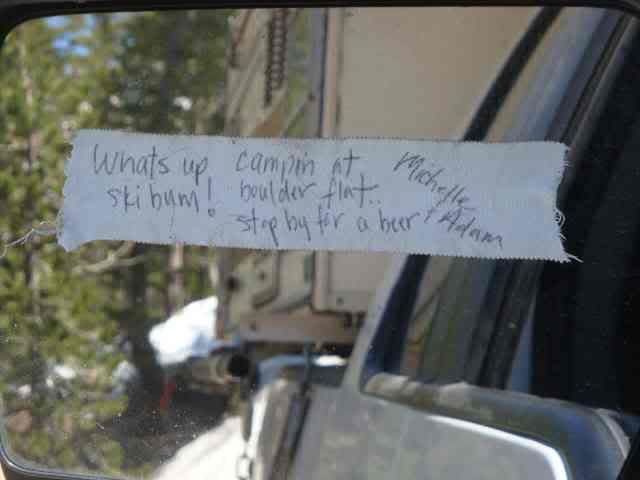 Whats up
ski bum!
campin at
boulder flat..
stop by for a beer
Michelle
& Adam